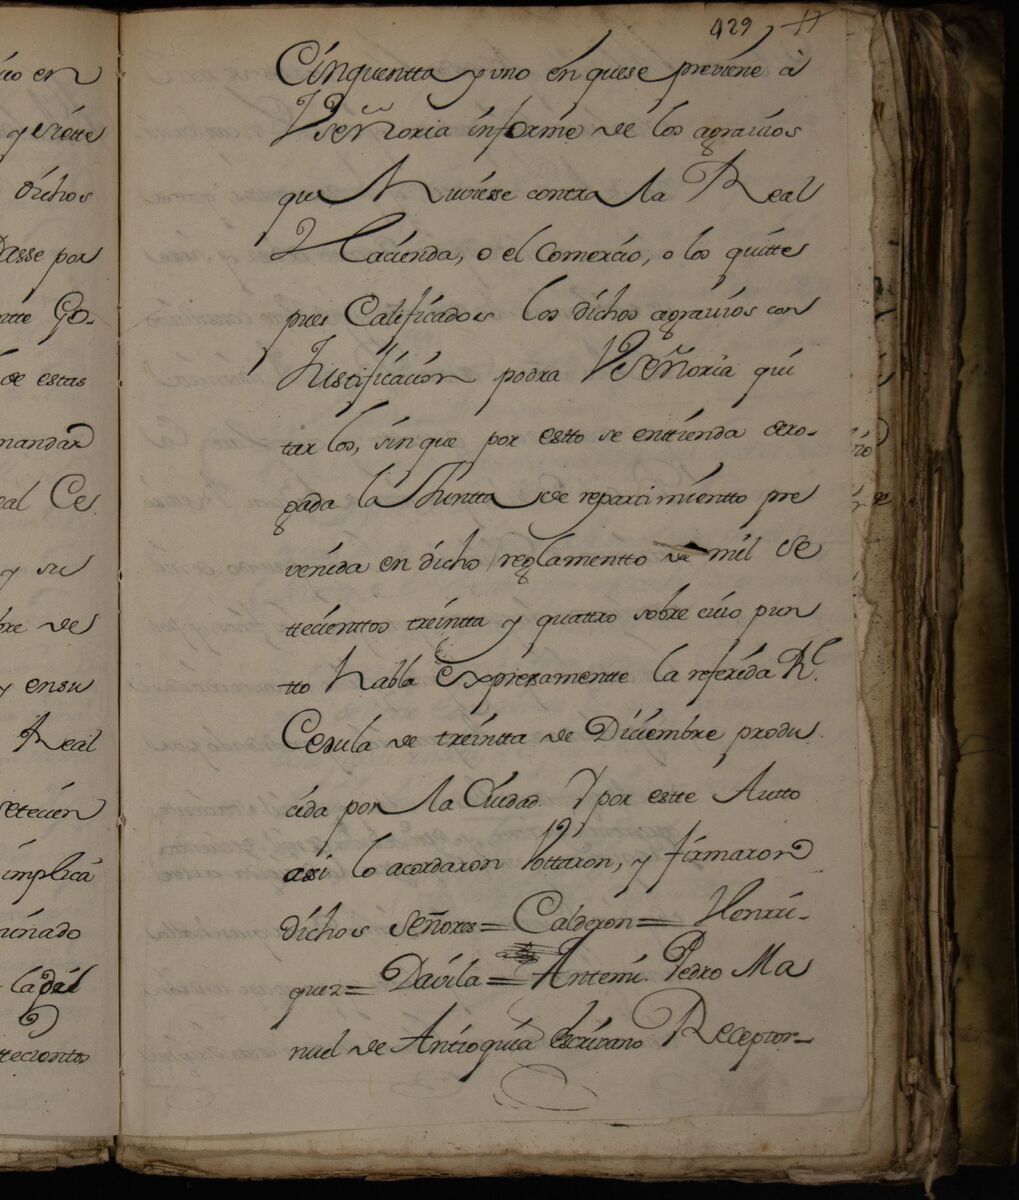 ɩio en
y siette
dichos
Dasse por
ntte Go-
de estas
mandar
eal Ce
y su
bre de
y ensu
Real
setecien
implica
minado
ttecientos
429
Cinquentta y uno en quese previene à
Vseñoria informe de los agravios
que Huviesse contra la Real
Hacienda, o el Comercio, o los quitte
pues Calificados los dichos agravios con
Justificacion podra Vseñoria qui
tarlos, sin que por estto se enttienda dero-
gada la Juntta de repartimientto pre
venida en dicho reglamentto de mil se
ttecienttos treintta y quattro sobre cuio pun
tto habla expresamentte la referida Rl.
Cedula de treintta de Diciembre produ
cida por la Ciudad. Y por estte Autto
assi lo acordaron Vottaron, y firmaron
dichos señores = Calderon = Henrri-
quez = Davila = Antemi. Pedro Ma
nuel de Antioquia escrivano Receptor-